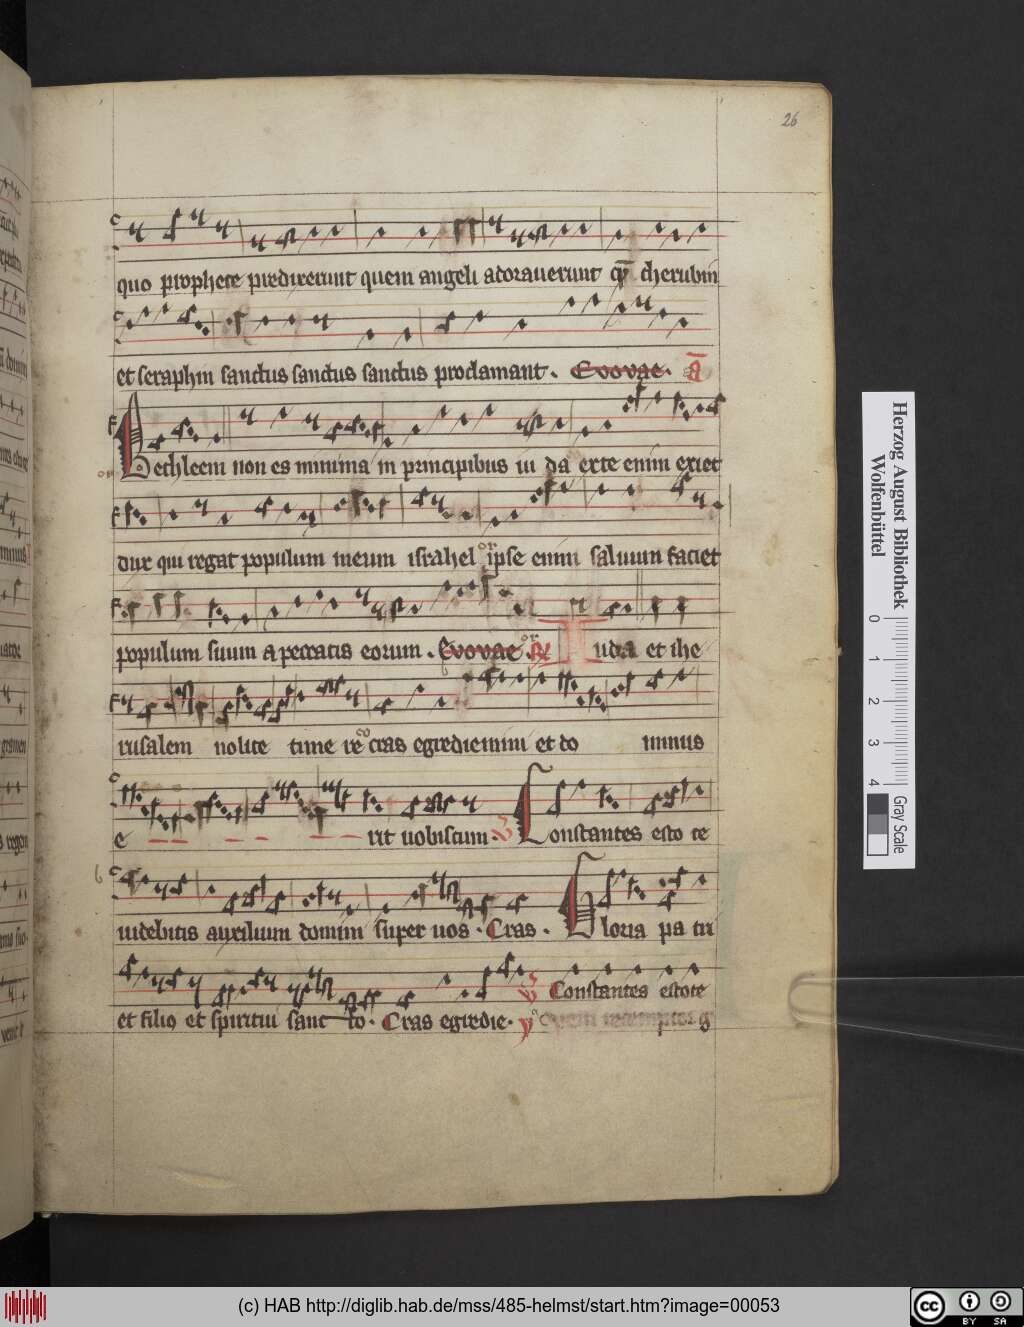 26
quo prophete predixerunt quem angeli adorauerunt cherubin
et seraphin sanctus sanctus sanctus proclamant. Evovae. A
Bethleem non es minima in principibus iu da exte enim exiet
dux qui regat populum meum israhel ipse enim saluum faciet
populum suum a peccatis eorum. Evovae. R Iudea et ihe
rusalem nolite time re cras egrediemini et do minus
e rit uobiscum. V Constantes esto te
uidebitis auxilium domini super uos. Cras. Gloria pa tri
V Constantes estote
et filio et spiritui sanc to. Cras egredie.
Herzog August Bibliothek
Wolfenbüttel
0 1 2 3 4
Gray Scale
(c) HAB http://diglib.hab.de/mss/485-helmst/start.htm?image=00053
cc BY SA